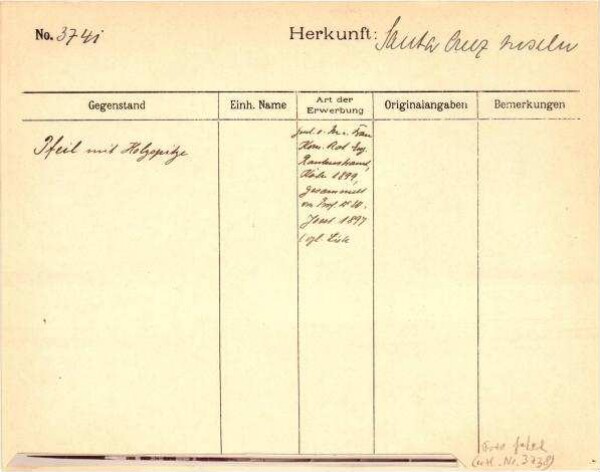 No. 374i
Herkunft: Santa Cruz Inseln
Gegenstand
Einh. Name
Art der Erwerbung
Originalangaben
Bemerkungen
Pfeil mit Holzspitze
Frau
Kom. Rat Eug.
Rautenstrauch,
Köln 1899,
gesammelt
von Prof. W.
Joest 1897
(vgl. Liste
(vgl. Nr. 3738)